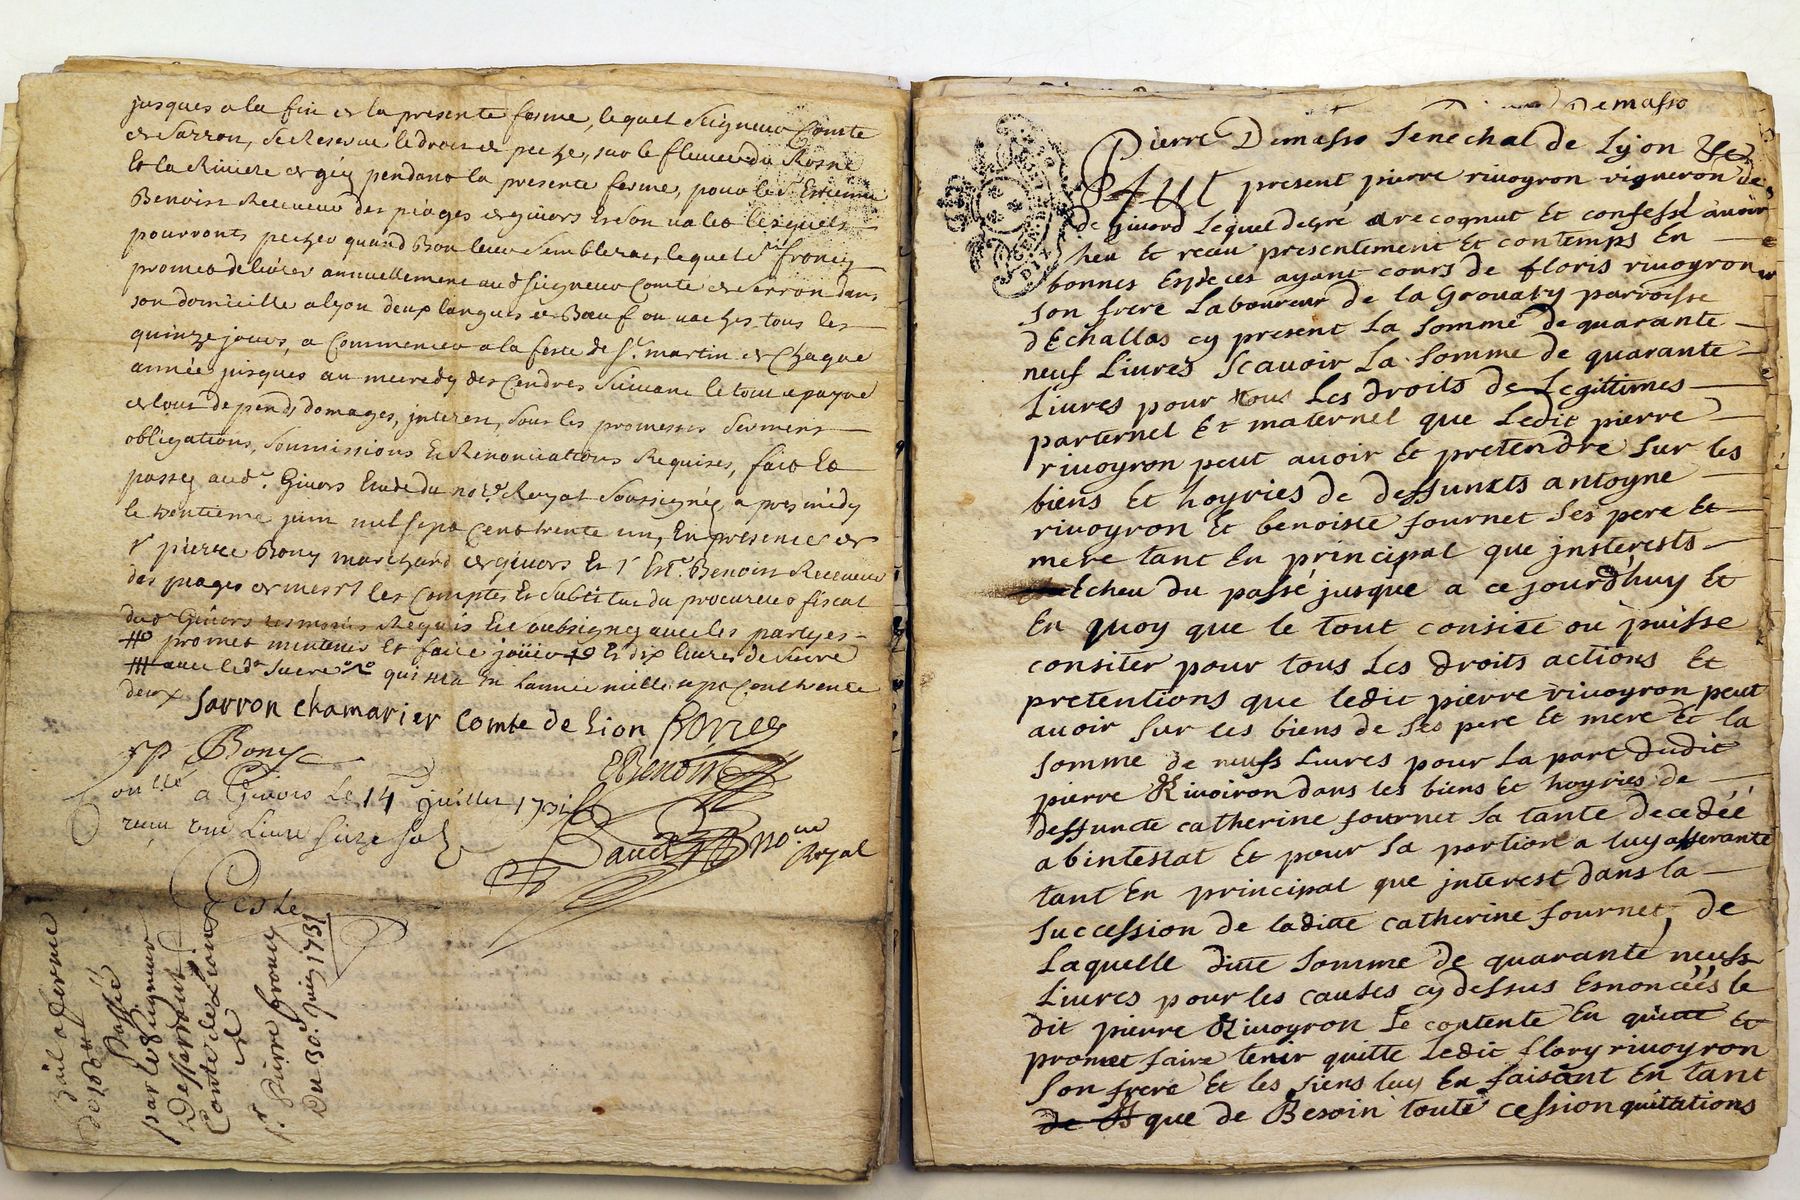 jusques a la fin de la presente ferme, lequel Seigneur Comte
de Sarron, se Reserve le droit de peche, sur le fleuve du Rosne
Et la Riviere de giés pendant la presente ferme, pour le Sr. Estienne
Benoist Receveur des péages de givors Et son valet lesquels
pourronts pecher quand Bon leur semblera, lequel Sr.
promet de livrer annuellement aud Seigneur Comte de Sarron dans
son domicille a lyon deux langues de Bœuf ou vaches tous les
quinze jours, a Commencer a la feste de St. martin de Chaque
année jusques au mecredy des Cendres Suivant le tout a payne
de tous depends domages, interest, sous les promesses serments
obligations, Soumissions Et Renonciations Requises, fait Et
passé aud. Givors Etude du no.re Royal Soussigné, apres midy
le trentieme juin mil sept Cent trente un, En presence de
Sr pierre Bony marchand de givors Et Sr Est. Benoist Receveur
des péages de
dud Givors tesmoins Requis Et soubsignez avec les partyes
promet maintenir Et faire joüir Et dix livres de sucre
avec led. sucre qui sera En Lannée mille sept Cent trente
deux
Sarron chamarier Comte de Lion
P Bony
EBenoist
Conllé a Givors Le 14 Juillet 1731
receu une Livre seize sols
David no.re
Royal
Bail a ferme
passé
par le Seigneur
De Sarron
Comte de Lion
a
Sr. Pierre
Du 30e. Juin 1731
Demasso
Pierre Demasso Senechal de Lyon
Fut present pierre rivoyron vigneron de
de Givord Lequel de gré a recognut Et confessé avoir
heu Et receu presentement Et contemps En
bonnes Espèces ayant cours de floris rivoyron
son frere Laboureur de la parroisse
dEchallas cy present La somme de quarante
neuf Livres Scavoir La somme de quarante
Livres pour tous Les droits de Legitimes
parternel Et maternel que Ledit pierre
rivoyron peut avoir Et pretendre sur les
biens Et hoyries de deffuncts antoyne
rivoyron Et benoiste fournet ses pere Et
mere tant En principal que jnsterests
Echeu du passé jusque a ce jourd'huy Et
En quoy que le tout consite ou puisse
consiter pour tous Les droits actions Et
pretentions que ledit pierre rivoyron peut
avoir sur les biens de ses pere Et mere Et la
somme de neufs Livres pour La part dudit
pierre Rivoiron dans les biens Et hoyries de
deffuncte catherine fournet sa tante decedéé
abintestat Et pour sa portion a luy afferante
tant En principal que jnterest dans la
succession de laditte catherine fournet, de
Laquelle ditte somme de quarante neufs
Livres pour les causes cy dessus Esnoncéés le
dit pierre Rivoyron Se contente En quitte Et
promet faire tenir quitte Ledit flory rivoyron
son frere Et les siens luy En faisant En tant
que de Besoin toute cession quitations